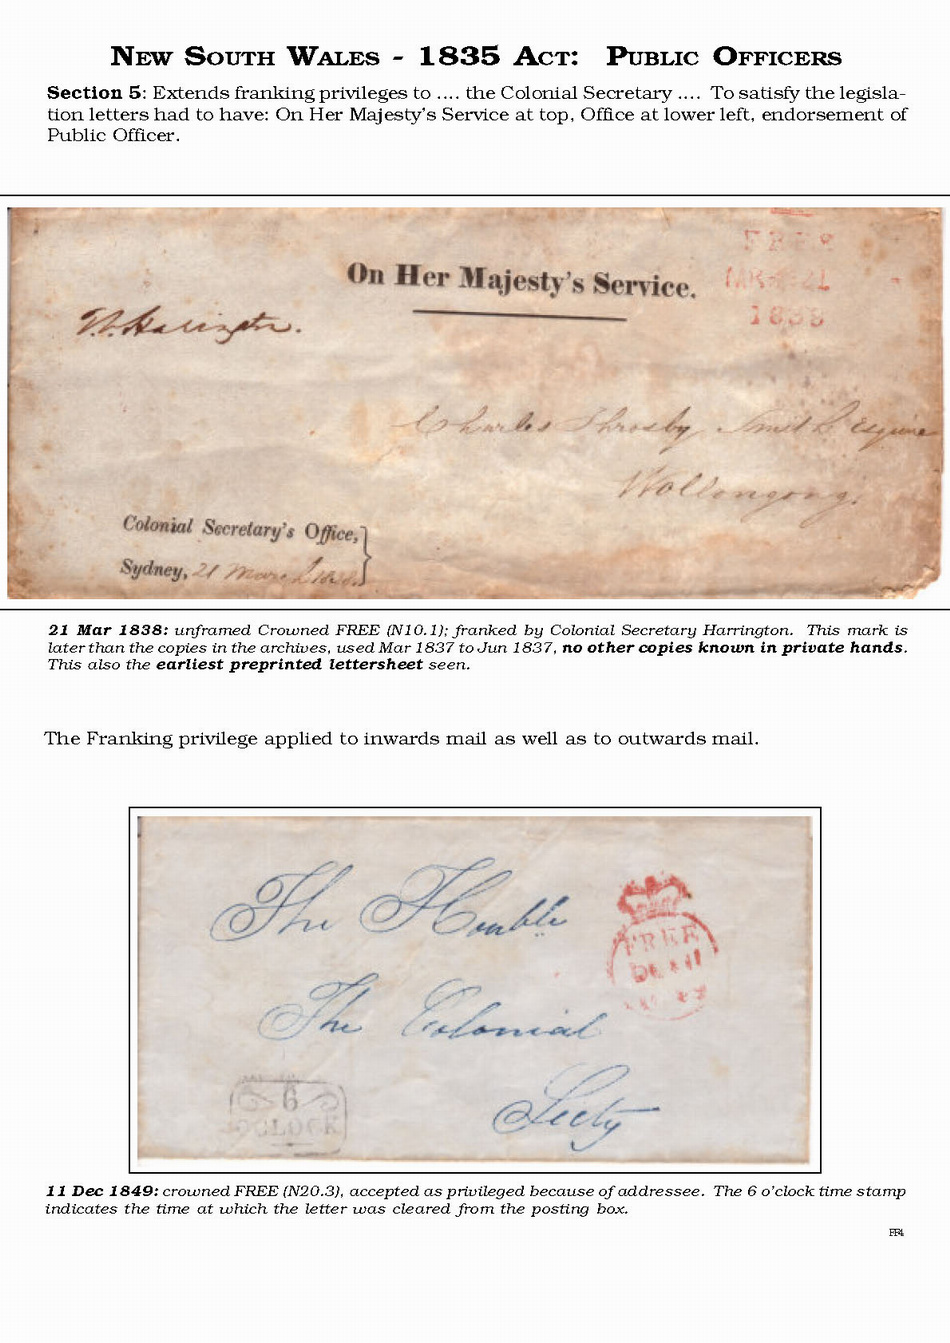 NEW SOUTH WALES - 1835 ACT: PUBLIC OFFICERS
Section 5: Extends franking privileges to .... the Colonial Secretary .... To satisfy the legisla-
tion letters had to have: On Her Majesty's Service at top, Office at lower left, endorsement of
Public Officer.
FREE
On Her Majesty's Service.
1838
Charles Throsby Smith Esquire
Wollongong.
Colonial Secretary's Office,
Sydney, 21 March 1838
21 Mar 1838: unframed Crowned FREE (N10.1); franked by Colonial Secretary Harrington. This mark is
later than the copies in the archives, used Mar 1837 to Jun 1837, no other copies known in private hands.
This also the earliest preprinted lettersheet seen.
The Franking privilege applied to inwards mail as well as to outwards mail.
The Honble
FREE
The Colonial
Secty
6
O'CLOCK
11 Dec 1849: crowned FREE (N20.3), accepted as privileged because of addressee. The 6 o'clock time stamp
indicates the time at which the letter was cleared from the posting box.
FF4